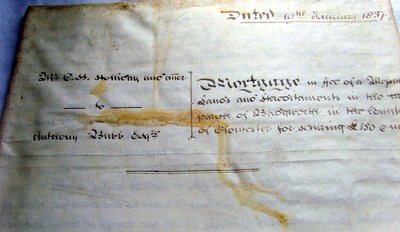 Dated 19th January 1837
Mr C. H. and anor
to
Anthony Bubb Esqre
Mortgage in fee of a Messuage
Lands and Hereditaments in the
parish of Badgworth in the County
of Gloucester for securing £180 &